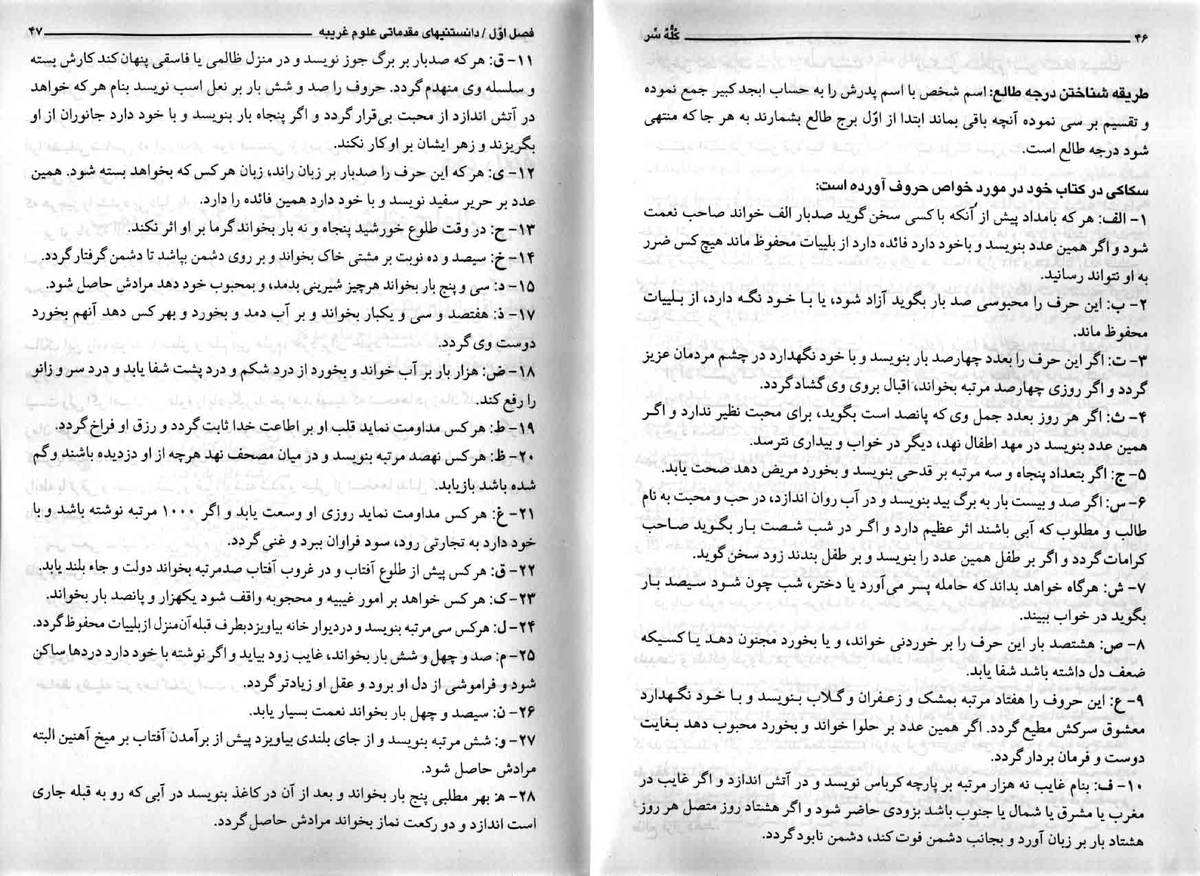 ۴۶ کُلُّهُ سّر
طریقه شناختن درجه طالع: اسم شخص با اسم پدرش را به حساب ابجد کبیر جمع نموده
و تقسیم بر سی نموده آنچه باقی بماند ابتدا از اوّل برج طالع بشمارند به هر جا که منتهی
شود درجه طالع است.
سکاکی در کتاب خود در مورد خواص حروف آورده است:
۱- الف: هر که بامداد پیش از آنکه با کسی سخن گوید صدبار الف خواند صاحب نعمت
شود و اگر همین عدد بنویسد و باخود دارد فائده دارد از بلیبات محفوظ ماند هیچ کس ضرر
به او نتواند رسانید.
۲- ب: این حرف را محبوسی صد بار بگوید آزاد شود، یا با خود نگه دارد، از بلیبات
محفوظ ماند.
۳- ت: اگر این حرف را بعدد چهارصد بار بنویسد و با خود نگهدارد در چشم مردمان عزیز
گردد و اگر روزی چهارصد مرتبه بخواند، اقبال بروی وی گشاد گردد.
۴- ث: اگر هر روز بعدد جمل وی که پانصد است بگوید، برای محبت نظیر ندارد و اگر
همین عدد بنویسد در مهد اطفال نهد، دیگر در خواب و بیداری نترسد.
۵- ج: اگر بتعداد پنجاه و سه مرتبه بر قدحی بنویسد و بخورد مریض دهد صحت یابد.
۶- س: اگر صد و بیست بار به برگ بید بنویسد و در آب روان اندازد، در حب و محبت به نام
طالب و مطلوب که آبی باشند اثر عظیم دارد و اگر در شب شصت بار بگوید صاحب
کرامات گردد و اگر بر طفل همین عدد را بنویسد و بر طفل بندند زود سخن گوید.
۷- ش: هرگاه خواهد بداند که حامله پسر می‌آورد یا دختر، شب چون شود سیصد بار
بگوید در خواب ببیند.
۸- ص: هشتصد بار این حرف را بر خوردنی خواند، و یا بخورد مجنون دهد یا کسیکه
ضعف دل داشته باشد شفا یابد.
۹- ع: این حروف را هفتاد مرتبه بمشک و زعفران و گلاب بنویسد و با خود نگهدارد
معشوق سرکش مطیع گردد. اگر همین عدد بر حلوا خواند و بخورد محبوب دهد بغایت
دوست و فرمان بردار گردد.
۱۰- ف: بنام غایب نه هزار مرتبه بر پارچه کرباس نویسد و در آتش اندازد و اگر غایب در
مغرب یا مشرق یا شمال یا جنوب باشد بزودی حاضر شود و اگر هشتاد روز متصل هر روز
هشتاد بار بر زبان آورد و بجانب دشمن فوت کند، دشمن نابود گردد.
فصل اوّل / دانستنیهای مقدماتی علوم غریبه ۴۷
۱۱- ق: هر که صدبار بر برگ جوز نویسد و در منزل ظالمی یا فاسقی پنهان کند کارش بسته
و سلسله وی منهدم گردد. حروف را صد و شش بار بر نعل اسب نویسد بنام هر که خواهد
در آتش اندازد از محبت بی‌قرار گردد و اگر پنجاه بار بنویسد و با خود دارد جانوران از او
بگریزند و زهر ایشان بر او کار نکند.
۱۲- ی: هر که این حرف را صدبار بر زبان راند، زبان هر کس که بخواهد بسته شود. همین
عدد بر حریر سفید نویسد و با خود دارد همین فائده را دارد.
۱۳- ح: در وقت طلوع خورشید پنجاه و نه بار بخواند گرما بر او اثر نکند.
۱۴- خ: سیصد و ده نوبت بر مشتی خاک بخواند و بر روی دشمن بپاشد تا دشمن گرفتار گردد.
۱۵- د: سی و پنج بار بخواند هرچیز شیرینی بدمد، و بمحبوب خود دهد مرادش حاصل شود.
۱۷- ذ: هفتصد و سی و یکبار بخواند و بر آب دمد و بخورد و بهر کس دهد آنهم بخورد
دوست وی گردد.
۱۸- ض: هزار بار بر آب خواند و بخورد از درد شکم و درد پشت شفا یابد و درد سر و زانو
را رفع کند.
۱۹- ط: هر کس مداومت نماید قلب او بر اطاعت خدا ثابت گردد و رزق او فراخ گردد.
۲۰- ظ: هرکس نهصد مرتبه بنویسد و در میان مصحف نهد هرچه از او دزدیده باشند و گم
شده باشد بازیابد.
۲۱- غ: هرکس مداومت نماید روزی او وسعت یابد و اگر ۱۰۰۰ مرتبه نوشته باشد و با
خود دارد به تجارتی رود، سود فراوان ببرد و غنی گردد.
۲۲- ق: هر کس پیش از طلوع آفتاب و در غروب آفتاب صدمرتبه بخواند دولت و جاه بلند یابد.
۲۳- ک: هر کس خواهد بر امور غیبیه و محجوبه واقف شود یکهزار و پانصد بار بخواند.
۲۴- ل: هرکس سی مرتبه بنویسد و در دیوار خانه بیاویزد بطرف قبله آن منزل از بلیبات محفوظ گردد.
۲۵- م: صد و چهل و شش بار بخواند، غایب زود بیاید و اگر نوشته با خود دارد دردها ساکن
شود و فراموشی از دل او برود و عقل او زیادتر گردد.
۲۶- ن: سیصد و چهل بار بخواند نعمت بسیار یابد.
۲۷- و: شش مرتبه بنویسد و از جای بلندی بیاویزد پیش از برآمدن آفتاب بر میخ آهنین البته
مرادش حاصل شود.
۲۸- هـ: بهر مطلبی پنج بار بخواند و بعد از آن در کاغذ بنویسد در آبی که رو به قبله جاری
است اندازد و دو رکعت نماز بخواند مرادش حاصل گردد.